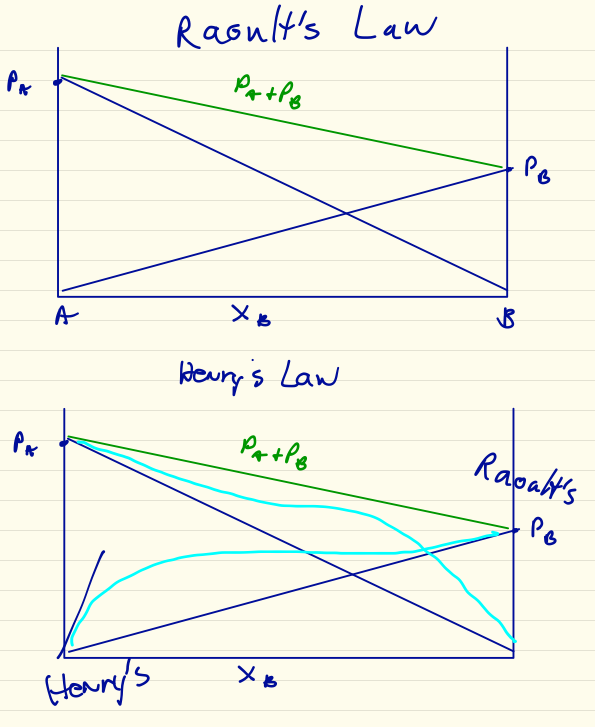 Raoult's Law
PA
PA+PB
PB
A
XB
B
Henry's Law
PA
PA+PB
Raoalt's
PB
Henry's
XB